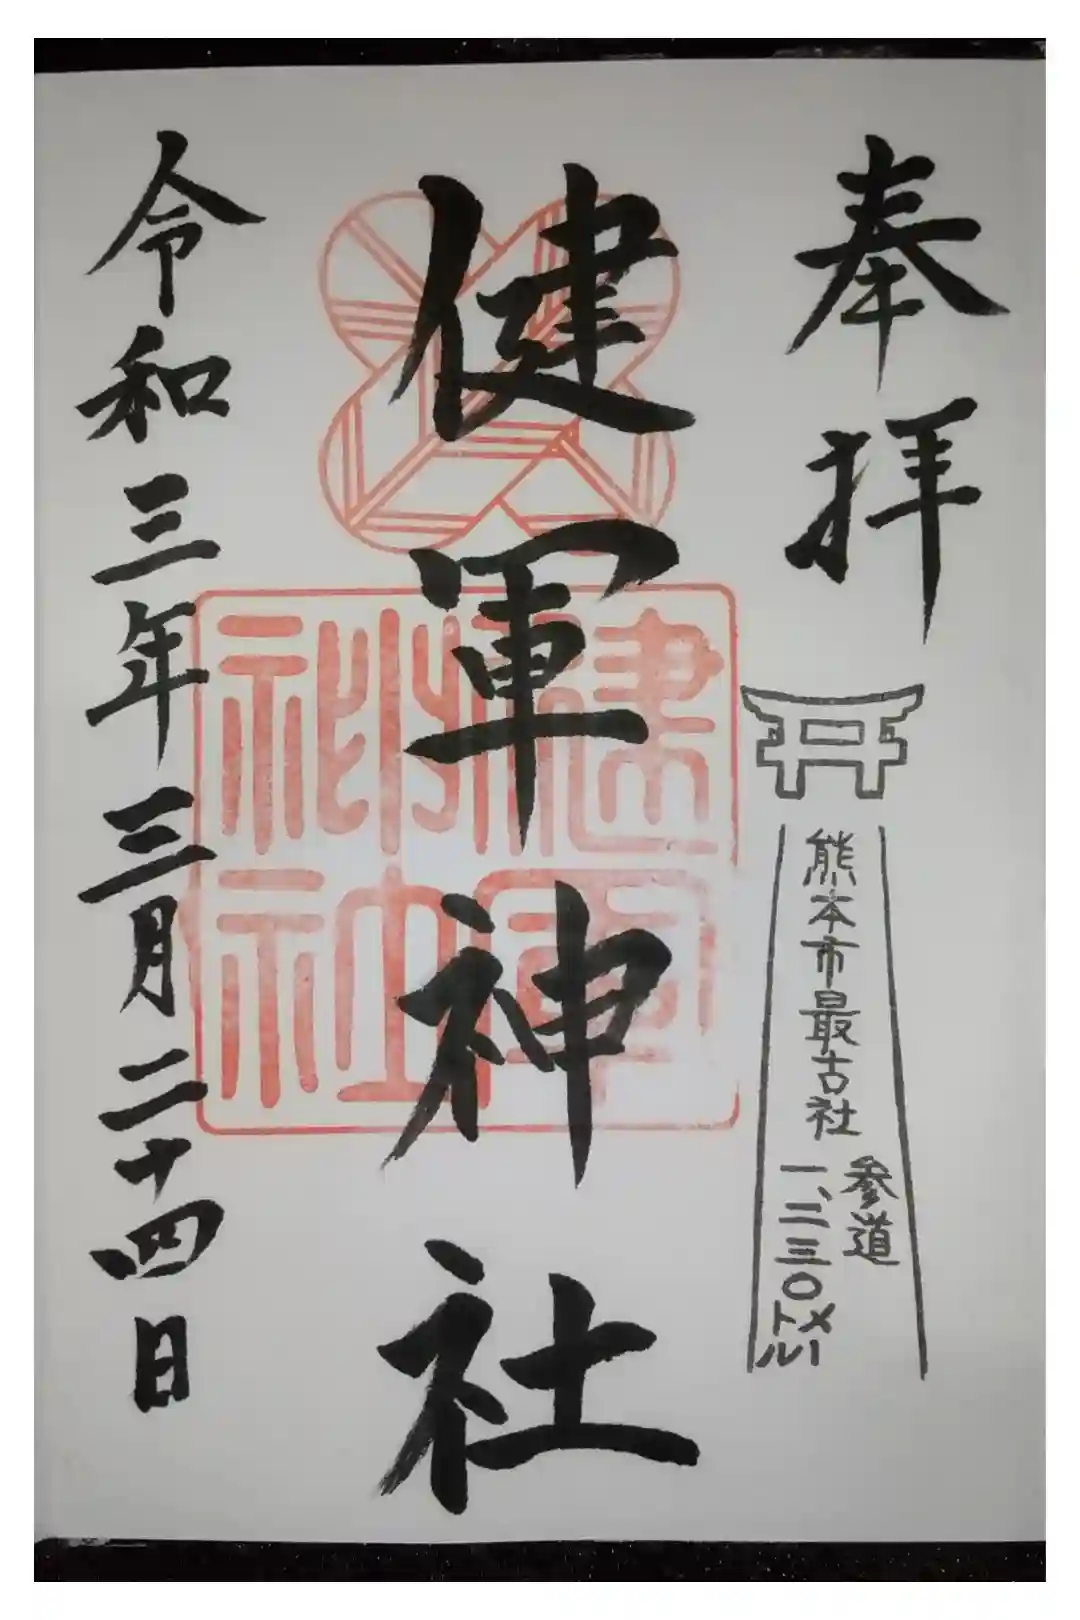 奉拝
熊本市最古社
参道
一、二三〇メートル
健軍神社
健軍
神社
令和三年三月二十四日